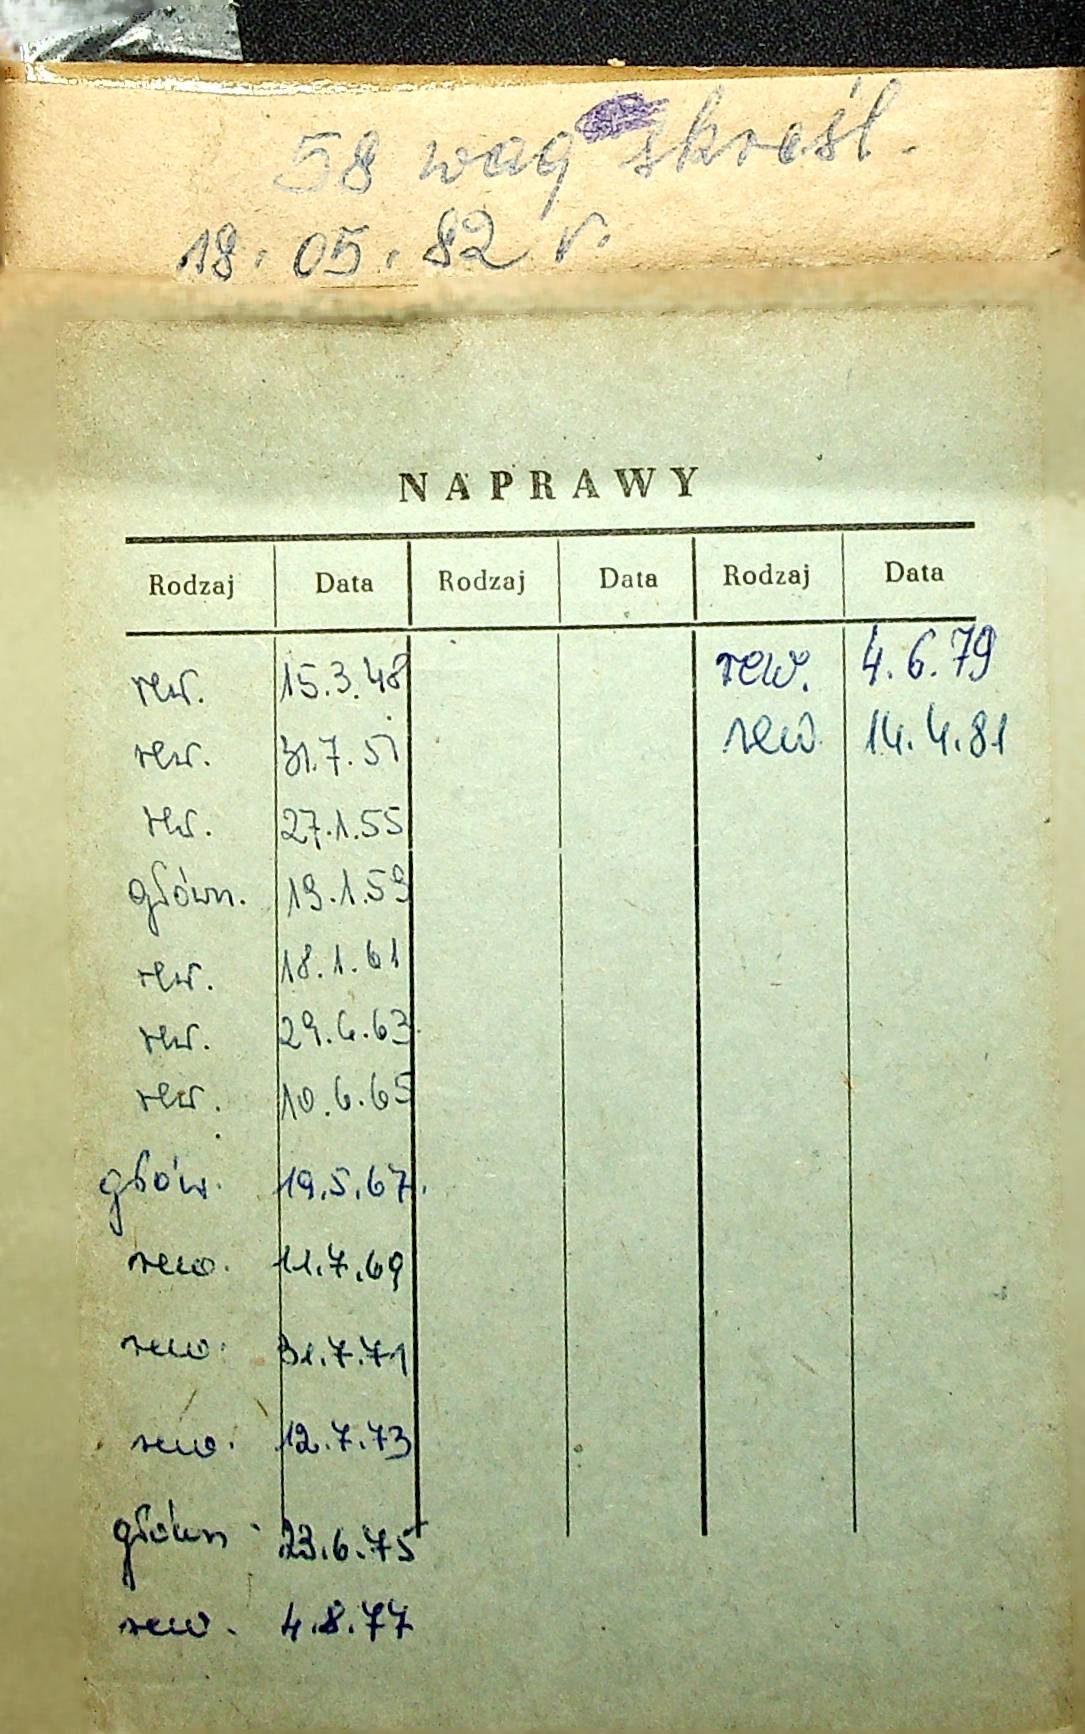 58 wag skreśl.
18.05.82 r.
NAPRAWY
Rodzaj Data Rodzaj Data Rodzaj Data
rew. 15.3.48 rew. 4.6.79
rew. 31.7.51 rew. 14.4.81
rew. 27.1.55
główn. 19.1.59
rew. 18.1.61
rew. 29.6.63.
rew. 10.6.65
główn. 19.5.67.
rew. 11.7.69
rew. 31.7.71
rew. 12.7.73
główn 23.6.75
rew. 4.8.77